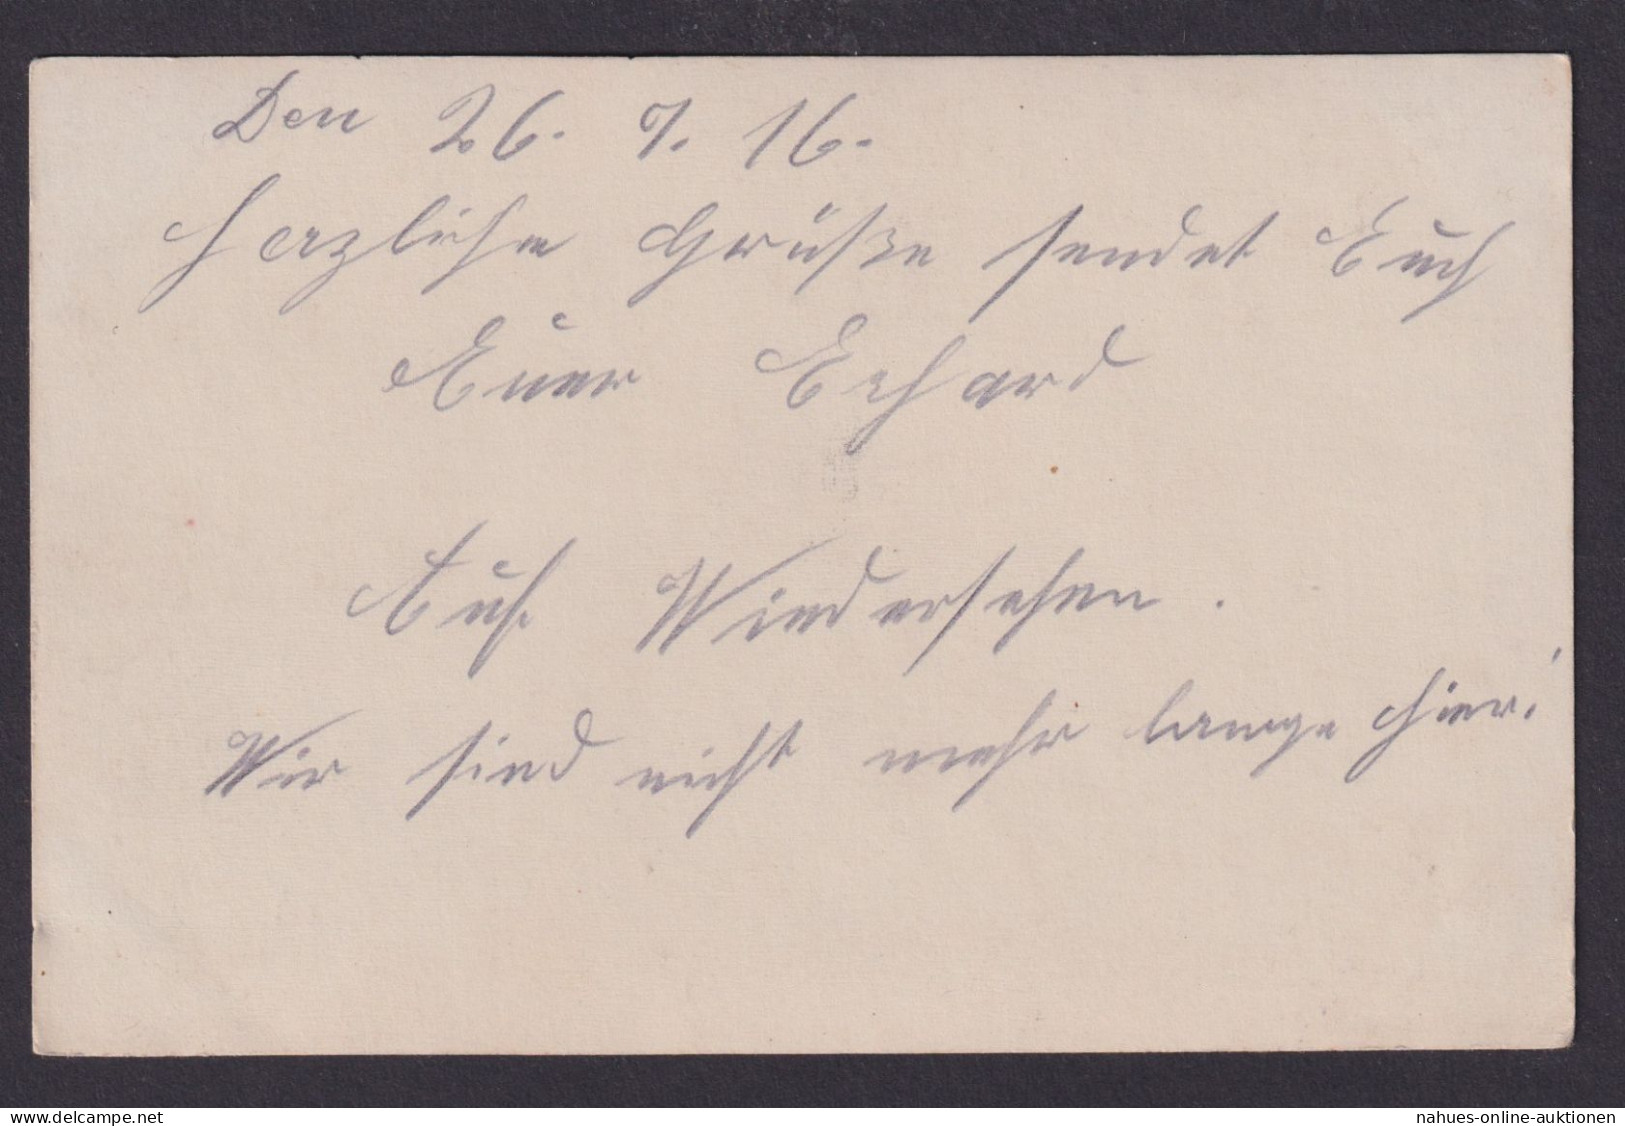 Den 26. 7. 16.
Herzliche Grüße sendet Euch
Euer Erhard
Auf Wiedersehen.
Wir sind nicht mehr lange hier!
www.delcampe.net
nahues-online-auktionen